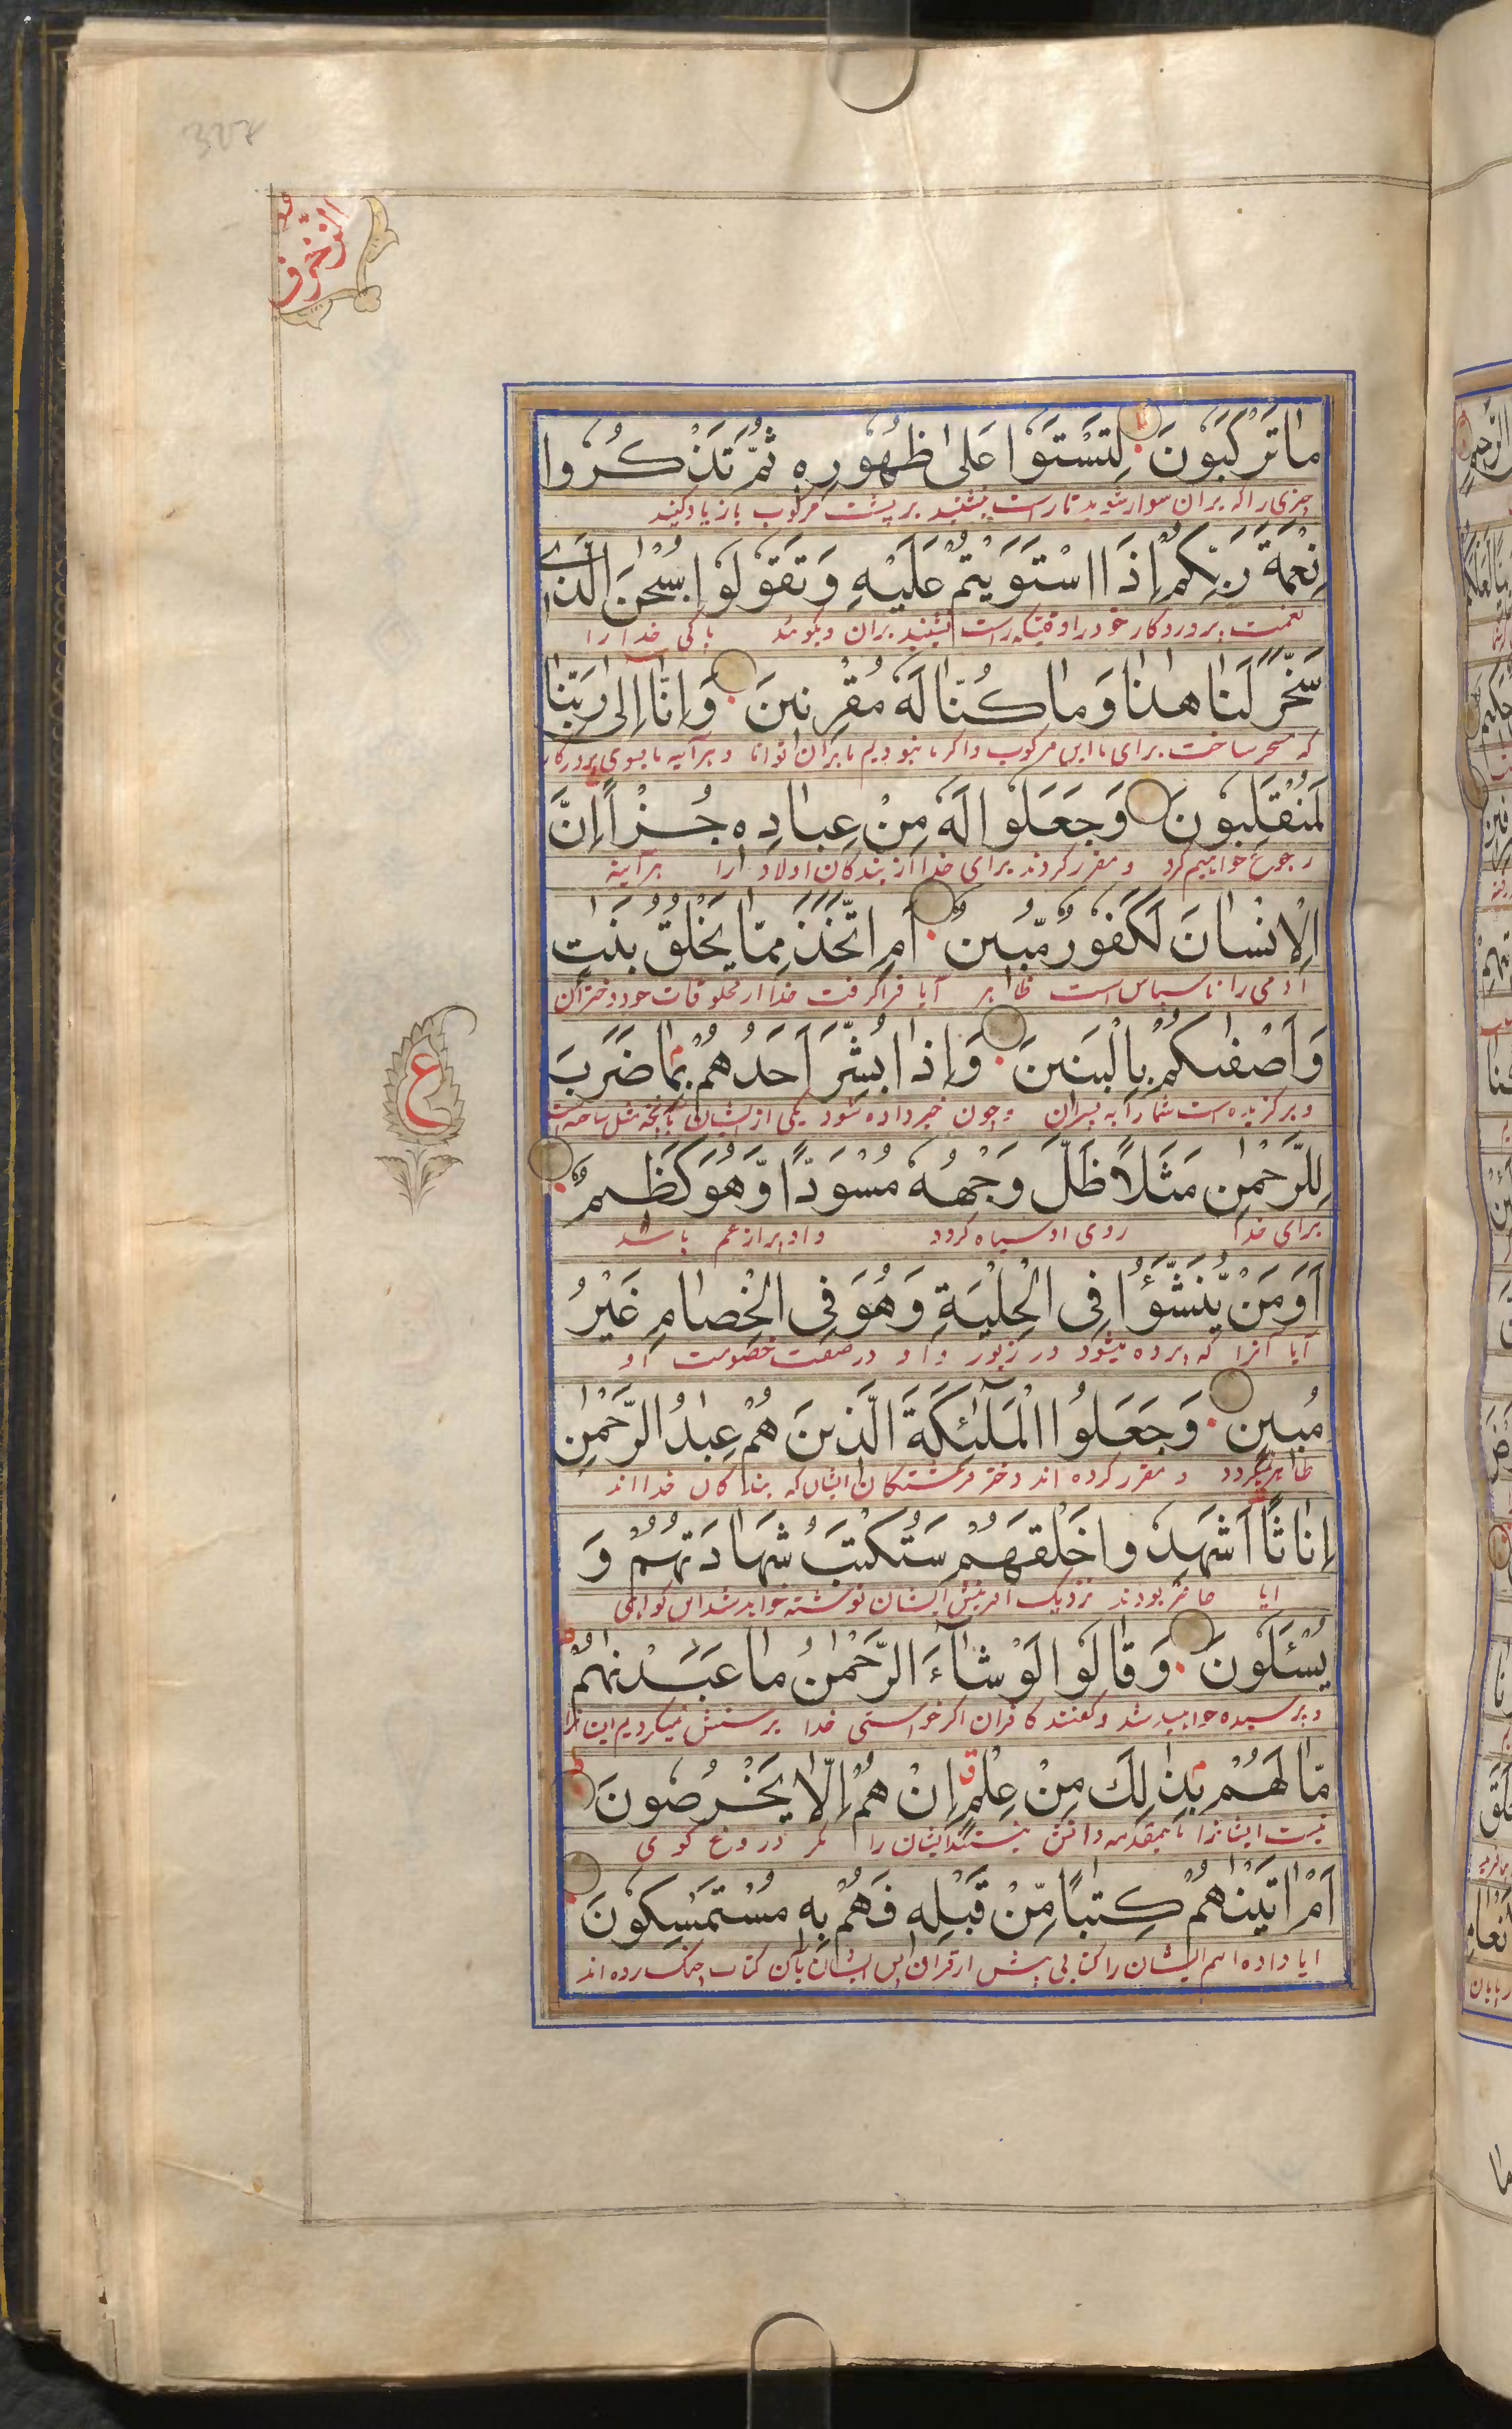 الزخرف
ما تَرْكَبُونَ لِتَسْتَوٗا عَلىٰ ظُهُوْرِهٖ ثُمَّ تَذْكُرُوا
چیزی را که بران سوار شوید تا راست بنشینید بر پشت مرکوب باز یاد کنید
نِعْمَةَ رَبِّكُمْ إِذَا اسْتَوَيْتُمْ عَلَيْهِ وَتَقُولُوا سُبْحٰنَ الَّذِي
نعمت پروردکار خود را وقتیکه راست نشینید بران و بکوئید پاکی خدا را
سَخَّرَ لَنا هٰذا وَما كُنَّا لَهٗ مُقْرِنِينَ وَاِنَّا اِلىٰ رَبِّنا
که مسخر ساخت برای ما این مرکوب را کر ما نبودیم ما بران توانا و هر آینه ما بسوی پروردکار
لَمُنْقَلِبُونَ وَجَعَلُوا لَهٗ مِنْ عِبادِهٖ جُزْاً اِنَّ
رجوع خواهیم کرد و مقرر کردند برای خدا از بندکان اولاد را هر آینه
الْاِنْسانَ لَكَفُورٌ مُّبِينٌ اَمِ اتَّخَذَ مِمَّا يَخْلُقُ بَنٰتٍ
آدمی را ناسپاس است ظاهر آیا فرا کرفت خدا از مخلوقات خود دختران
وَاَصْفٰىكُمْ بِالْبَنِينَ وَاِذا بُشِّرَ اَحَدُهُمْ بِمٰا ضَرَبَ
و برکزیده است شما را به پسران و چون خبر داده شود یکی از ایشان بآنچه مثل ساخته است
لِلرَّحْمٰنِ مَثَلاً ظَلَّ وَجْهُهٗ مُسْوَدًّا وَّهُوَ كَظِيمٌ
برای خدا روی او سیاه کردد و او پر از غم باشد
اَوَمَنْ يُّنَشَّؤُا فِى الْحِلْيَةِ وَهُوَ فِى الْخِصامِ غَيْرُ
آیا آنرا که پرده میشود در زیور و او در صفت خصومت او
مُبِينٍ وَجَعَلُوا الْمَلٰٓئِكَةَ الَّذِينَ هُمْ عِبٰدُ الرَّحْمٰنِ
ظاهر نمیکردد و مقرر کرده اند دختر فرشتکان ایشان که بندکان خدا اند
اِناثًا اَشَهِدُوا خَلْقَهُمْ سَتُكْتَبُ شَهَادَتُهُمْ وَ
ایا حاضر بودند نزدیک آفرینش ایشان نوشته خواهد شد این کواهی
يُسْئَلُونَ وَقالُوا لَوْ شآءَ الرَّحْمٰنُ ما عَبَدْنٰهُمْ
و پرسیده خواهد شد و کفتند کافران اکر خواستی خدا پرستش نمیکردیم ایشانرا
مّا لَهُمْ بِذٰلِكَ مِنْ عِلْمٍ اِنْ هُمْ اِلّا يَخْرُصُونَ
نیست ایشانرا باینمقدمه دانش نیستند ایشان را مکر دروغ کوی
اَمْ اٰتَيْنٰهُمْ كِتٰبًا مِّنْ قَبْلِهٖ فَهُمْ بِهٖ مُسْتَمْسِكُونَ
ایا داده ایم ایشان را کتابی پیش از قران پس ایشان بآن کتاب چنک زده اند
ع